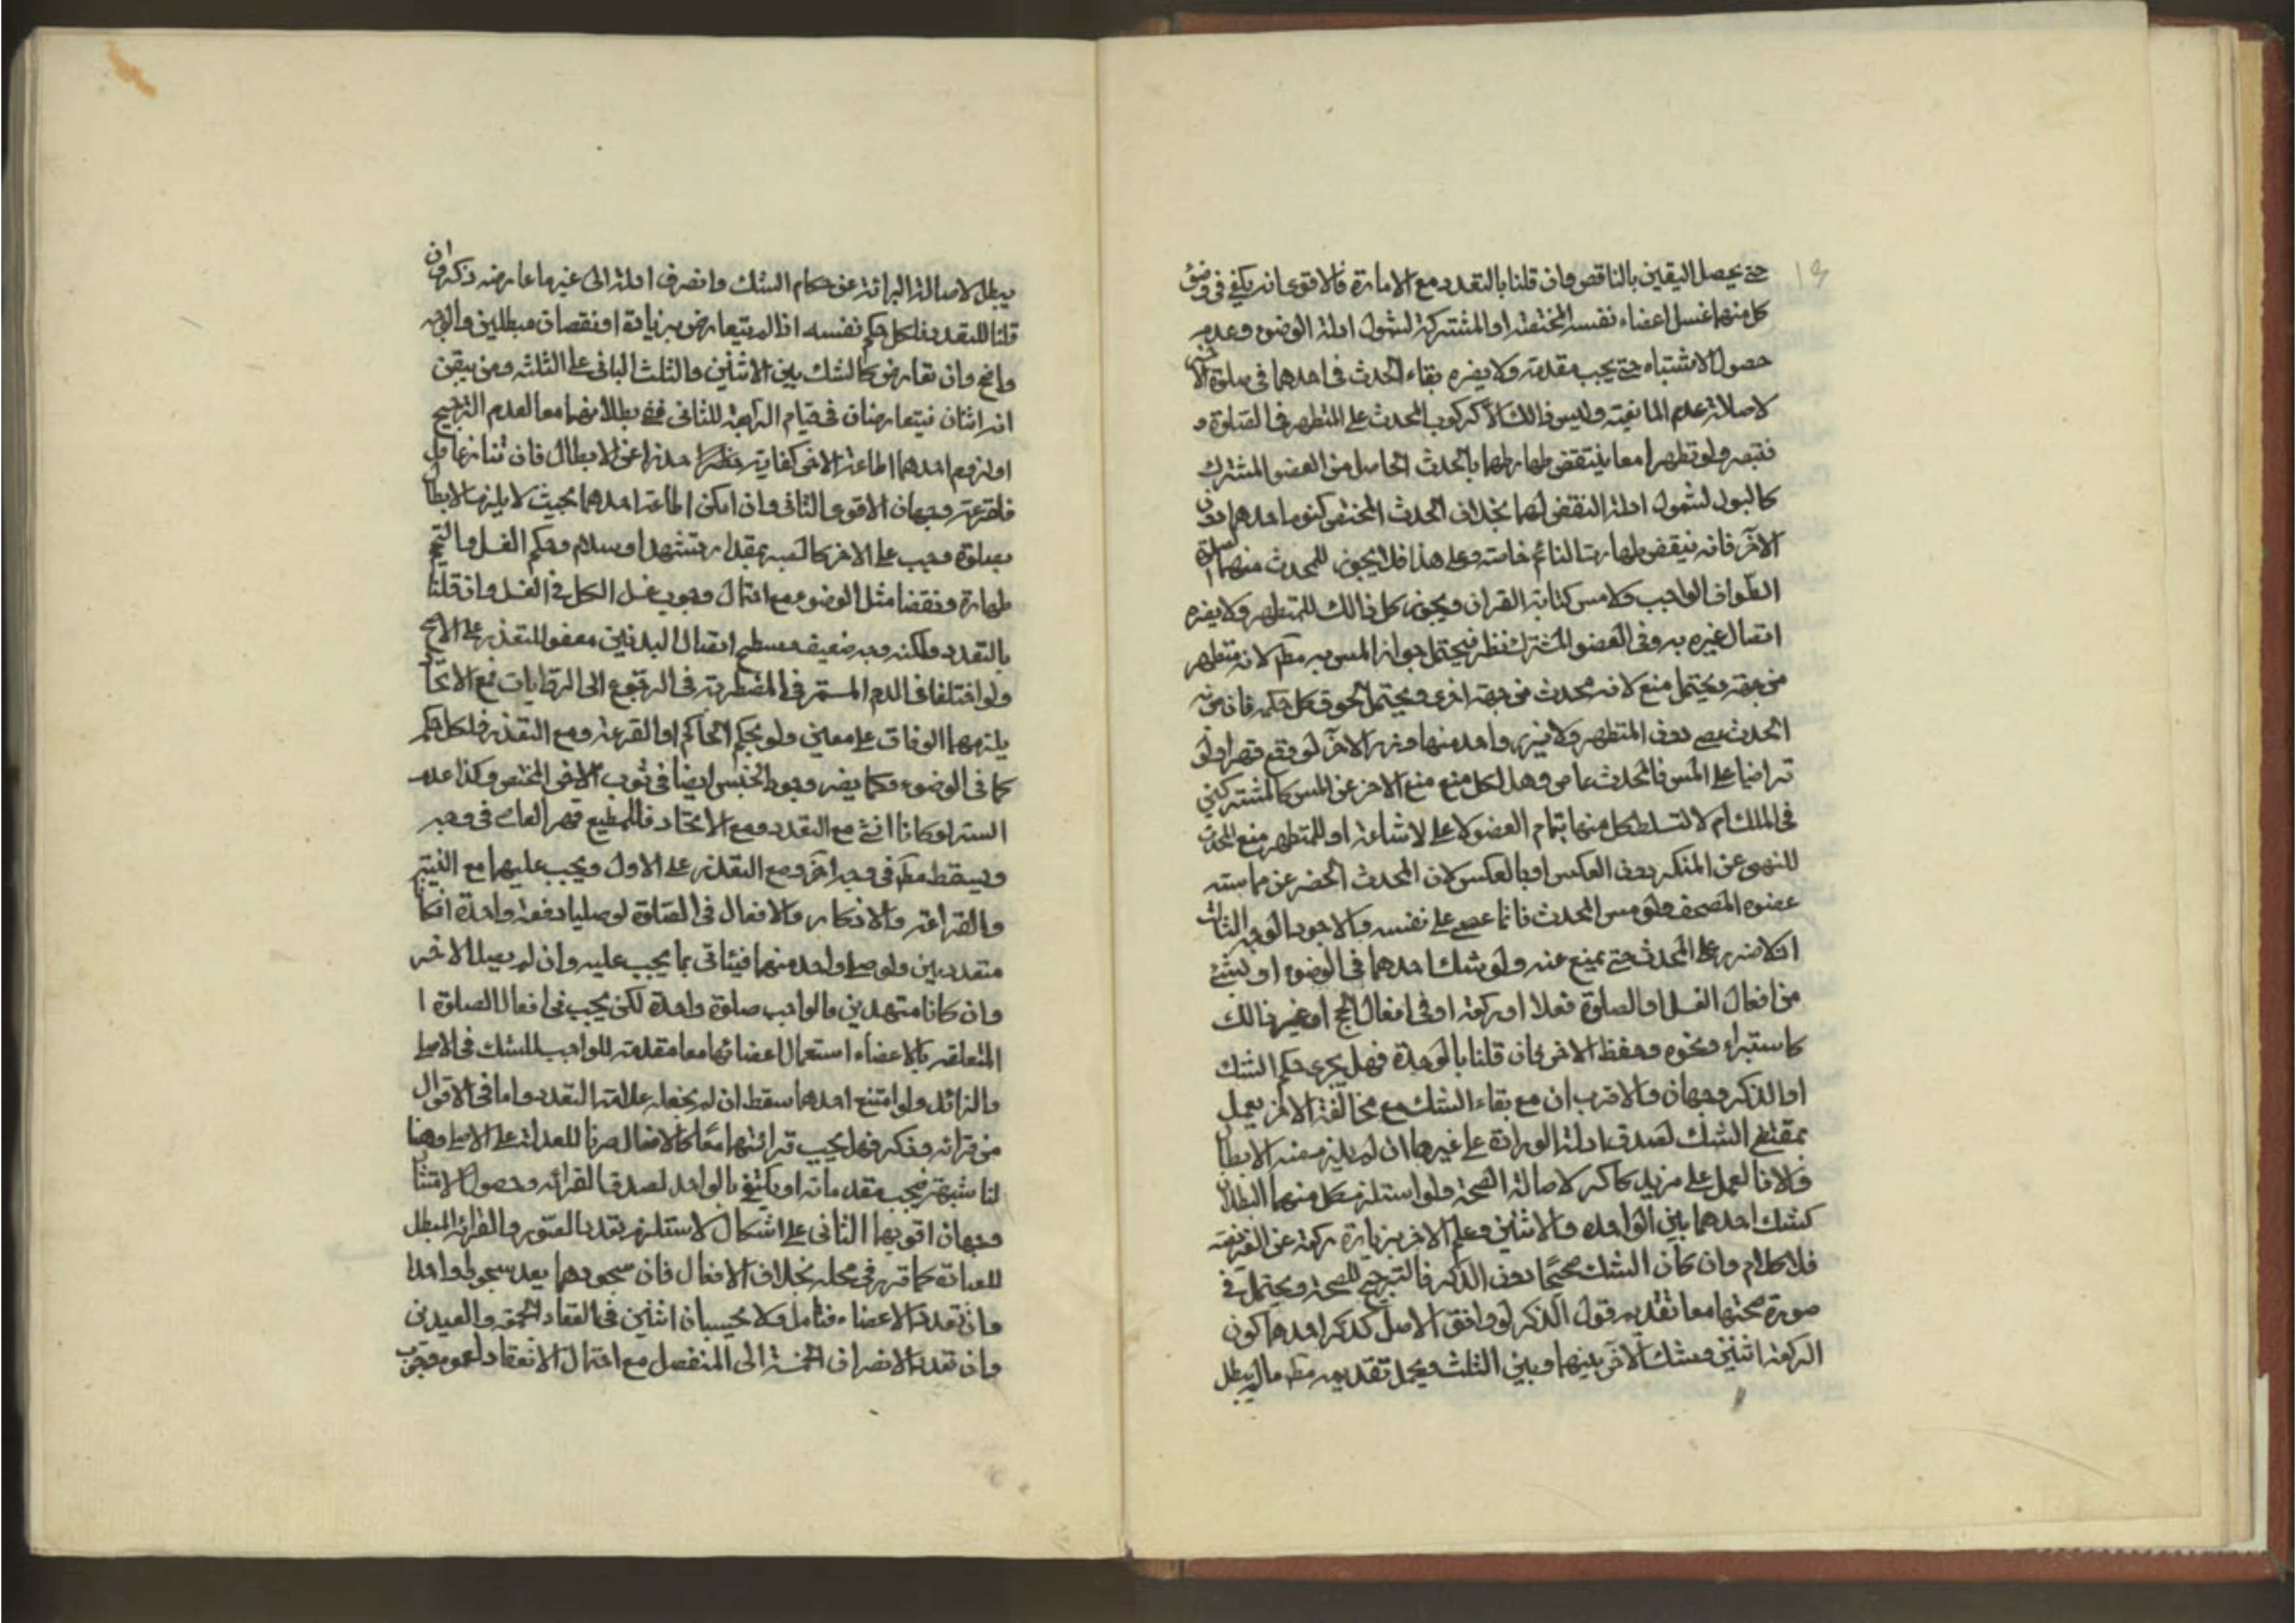 حتى يحصل اليقين بالناقص وان قلنا بالتعدد مع الامارة فالاقوى انه يكفي في وضوء
كل منهما غسل اعضاء نفسه المختصة او المشتركة لشمول ادلة الوضوء وعدم
حصول الاشتباه حتى يجب مقدمة ولا يضره بقاء الحدث في احدهما في صلوة الاخر
لاصالة عدم المانعية وليس ذالك الا كركوب المحدث على المتطهر في الصلوة و
فتبصر ولو تطهرا معا ينتقض طهارتهما بالحدث الحاصل من العضو المشترك
كالبول لشمول ادلة النقض لهما بخلاف الحدث المختص كنوم احدهما دون
الآخر فانه ينقض طهارت النائم خاصة وعلى هذا فلا يجوز للمحدث منهما الصلوة
الطواف الواجب ولا مس كتابة القران ويجوز كل ذالك للمتطهر ولا يضره
اتصال غيره به وفي العضو المشترك نظر فيحتمل جواز المس به مطلقا لانه متطهر
من جهة ويحتمل منع لانه محدث من جهة اخرى ويحتمل لحوق كل حكمه فان مس به
الحدث عصى دون المتطهر ولا يزر واحد منهما وزر الاخر لو وقع قهرا ولو
تراضيا على المس فالمحدث عاص وهل لكل منع منع الاخر عن المس كالمشتركين
في الملك ام لا لتسلط كل منهما بتمام العضو لا على الاشاعة او للمتطهر منع المحدث
للنهي عن المنكر دون العكس او بالعكس لان المحدث الحضر عن مماسته
عضوه المصحف ولو مس المحدث فانما عصى على نفسه والاجود الوجه الثالث
اذ لا ضرر على المحدث حتى يمنع عنه ولو شك احدهما في الوضوء او بشئ
من افعال الغسل او الصلوة فعلا او ركعة او في افعال الحج او غير ذالك
كاستبراء ونحوه وحفظ الاخر فان قلنا بالوحدة فهل يجري حكم الشك
او الذكر وجهان والاقرب ان مع بقاء الشك مع مخالفة الاخر يعمل
بمقتضى الشك لصدق ادلة الواردة على غيرها ان لم يلزم منه الابطال
والا فالعمل على مزيل كاكر لاصالة الصحة ولو استلزم كل منهما البطلان
كشك احدهما بين الواحده والاثنين وعلم الاخر بزيادة ركعة عن الفريضة
فلا كلام وان كان الشك صحيحا دون الذكر فالترجيح للصحة ويحتمل في
صورة صحتهما معا تقديم قول الذكر لو وافق الاصل كذكر احدهما كون
الركعة اثنين وشك الآخر بينهما وبين الثلث ويحمل تقديمه مطلقا ما لم يبطل
يبطل لاصالة البرائة عن حكام الشك وانصرف ادلة الى غير ما عارضه ذكر وان
قلنا للتعدد فلكل حكم نفسه اذا لم يتعارض بزيادة او نقصان مبطلين والوجه
واضح وان تعارض كالشك بين الاثنين والثلث الباني على الثلثه ومن يتقن
انه اثنان فيتعارضان في قيام الرابعة للثاني ففي بطلانهما معا لعدم الترجيح
او لزوم احدهما اطاعة الاخر كفاية حذرا عن الابطال فان تنازعا
فالقرعة وجهان الاقوى الثاني وان امكن اطاعة احدهما بحيث لا يلزم الابطال
بصلوة وجب على الاخر كالصبر بمقدار تشهد او سلام وحكم الغسل والتيمم
طهارة ونقضا مثل الوضوء مع احتمال وجوب غسل الكل في الغسل وان قلنا
بالتعدد ولكنه وجه ضعيف وسطح اتصال البدنين معفو للتعذر على الاصح
ولو اختلفا في الدم المستمر في المضطربة في الرجوع الى الروايات فمع الاتحاد
يلزمهما الوفاق على معين ولو بحكم الحاكم او القرعة ومع التعذر فلكل حكم
كما في الوضوء وكما يضر وجود الخبس ايضا في ثوب الاخر المختص وكذا عدم
الستر لو كانا انثى مع التعدد ومع الاتحاد فللمطيع قهر العاصي في وجه
ويسقط مطلقا في وجه آخر ومع التعذر على الاول ويجب عليهما مع النية
والقراءة والاذكار والافعال في الصلوة لو صليا دفعة واحدة اذ كانا
متعددين ولو صلى واحد منهما فيئاتي بما يجب عليه وان لم يصل الاخر
وان كانا متحدين والواجب صلوة واحدة لكن يجب في افعال الصلوة ا
المتعلقه بالاعضاء استعمال اعضائهما معا مقدمة للواجب للشك في الاصلي
والزائد ولو امتنع احدهما سقط ان لم يجعله علامة التعدد واما في الاقوال
من قرائة وذكر فهل يجب قرائتهما معا كالافعال صرفا للعدلة على الاصل وهنا
لنا شبهة فيجب مقدمات او يكتفي بالواحد لصدق القرائه وحصول الامتثال
وجهان اقويهما الثاني على اشكال لاستلزم تعدد الصور والقرائة المبطل
للعبادة كما قرر في محله بخلاف الافعال فان سجودهما يعد سجودا واحدا
وان تعددت الاعضاء فتامل ولا يحسبان اثنين في انعقاد الجمعة والعيدين
وان تعدد الانصراف الخمسة الى المنفصل مع احتمال الانعقاد لعموم وجوب